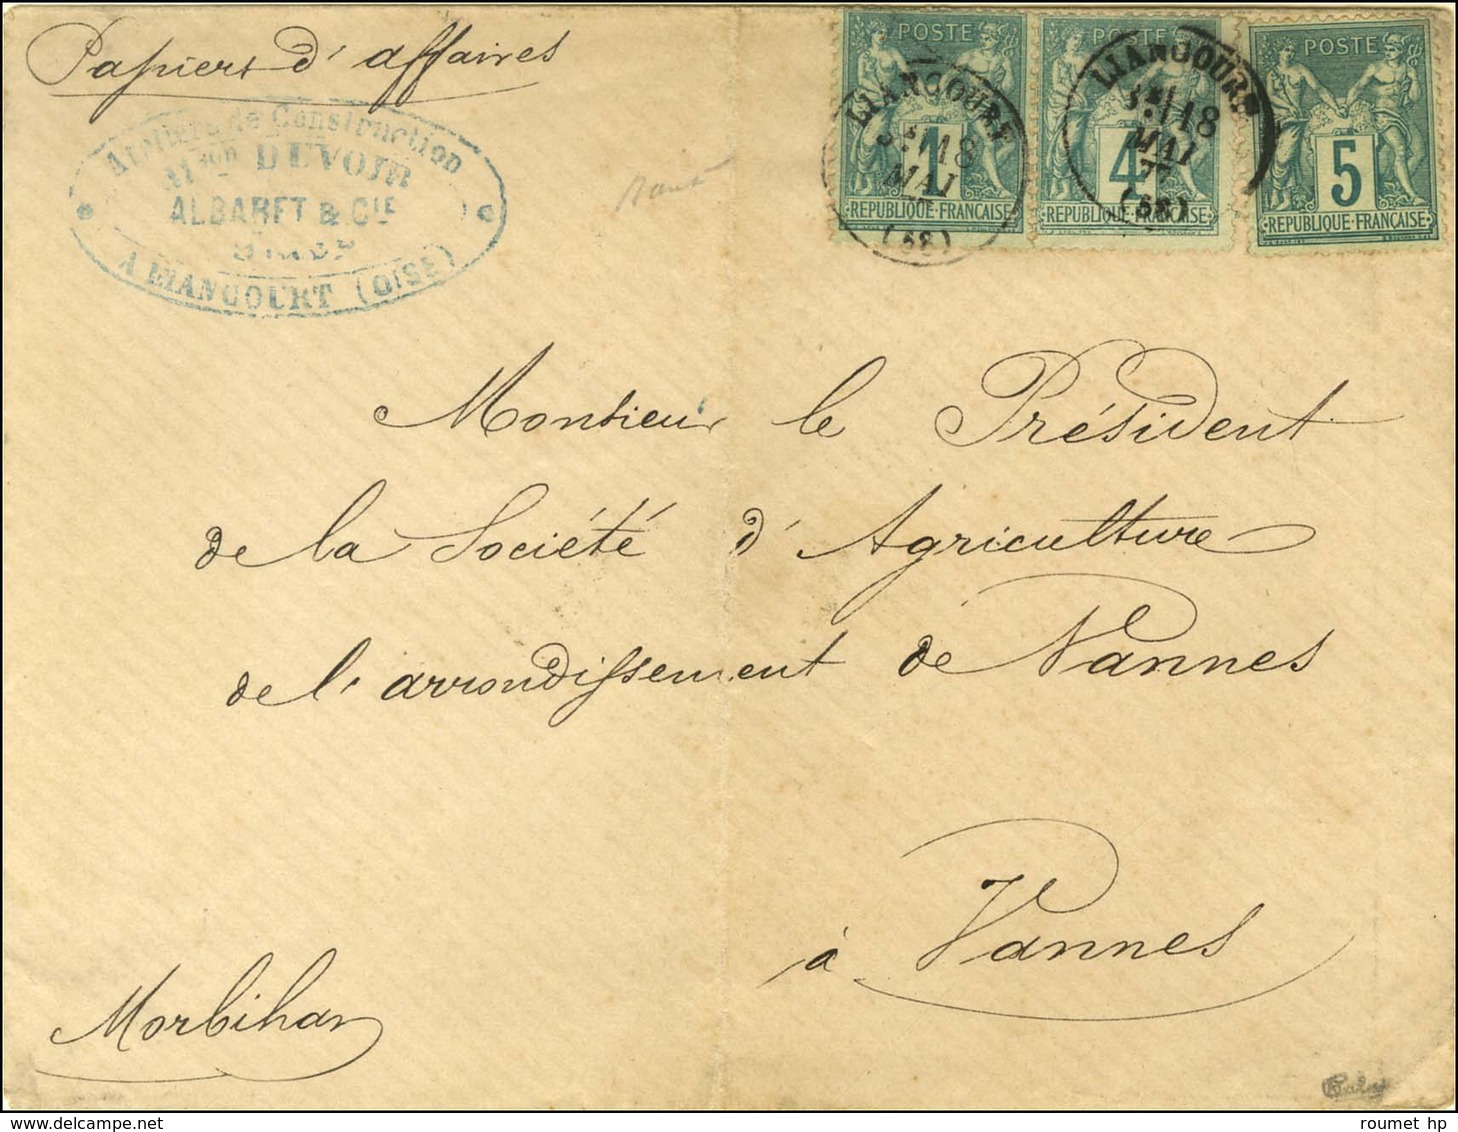 Papiers d'affaires
Ateliers de Construction
Mson DEVOIR
ALBARET & CIE
A LIANCOURT (OISE)
POSTE
1
REPUBLIQUE FRANÇAISE
POSTE
4
REPUBLIQUE FRANÇAISE
POSTE
5
REPUBLIQUE FRANÇAISE
LIANCOURT
18
MAI
(58)
LIANCOURT
18
MAI
77
(58)
Monsieur le Président
de la Société d'Agriculture
de l'arrondissement de Vannes
à Vannes
Morbihan
roumet hp